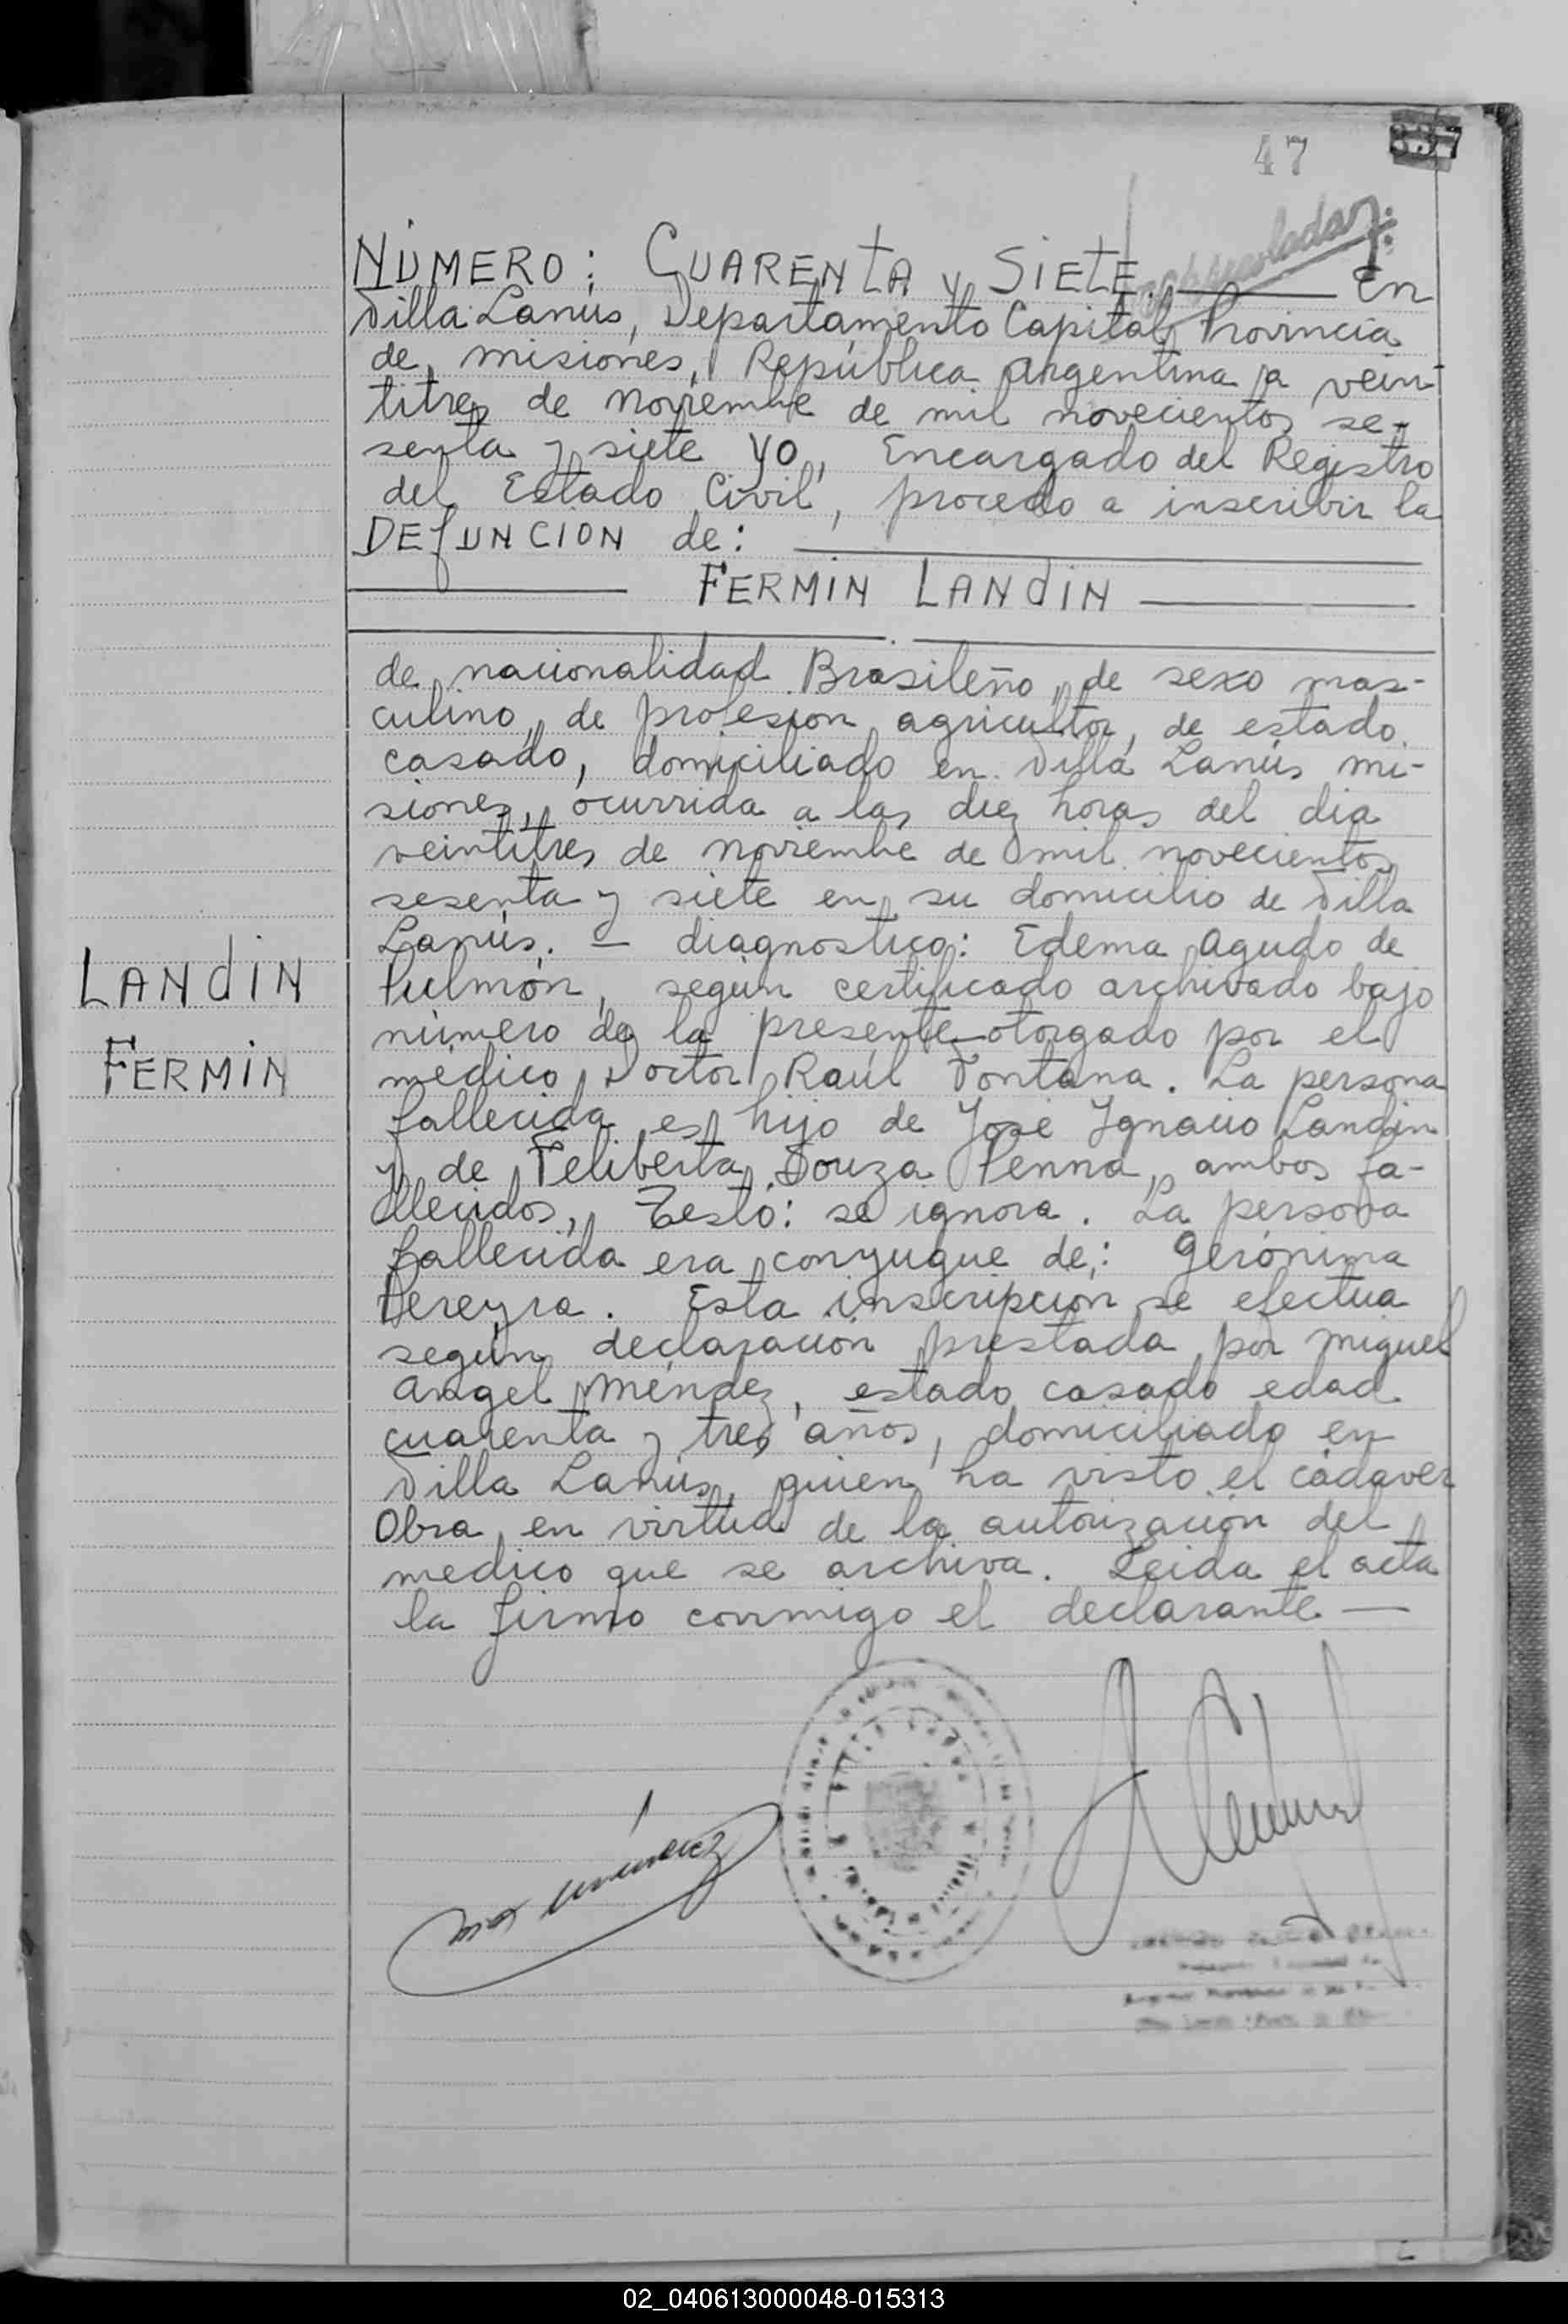 47
337
NÚMERO: CUARENTA y SIETE. — En
Villa Lanús, Departamento Capital, Provincia
de misiones, República Argentina a vein-
titres de noviembre de mil novecientos se-
senta y siete yo, Encargado del Registro
del Estado Civil, procedo a inscribir la
DEfUNCION de: —
— FERMIN LANdIN —
de nacionalidad Brasileño, de sexo mas-
culino, de profesion agricultor, de estado
casado, domiciliado en Villa Lanús mi-
siones, ocurrida a las diez horas del dia
veintitres de noviembre de mil novecientos
sesenta y siete en su domicilio de Villa
Lanús. — diagnostico: Edema agudo de
Pulmón, según certificado archivado bajo
número de la presente otorgado por el
médico Doctor Raúl Fontana. La persona
fallecida es hijo de José Ignacio Landin
y de Feliberta Souza Penna, ambos fa-
llecidos, Testó: se ignora. La persona
fallecida era conyugue de: Gerónima
Pereyra. Esta inscripción se efectua
según declaración prestada por miguel
angel Méndez, estado casado edad
cuarenta y tres años, domiciliado en
Villa Lanús, quien ha visto el cadaver
Obra en virtud de la autorización del
medico que se archiva. Leida el acta
la firmo conmigo el declarante —
LANdIN
FERMIN
02_040613000048-015313